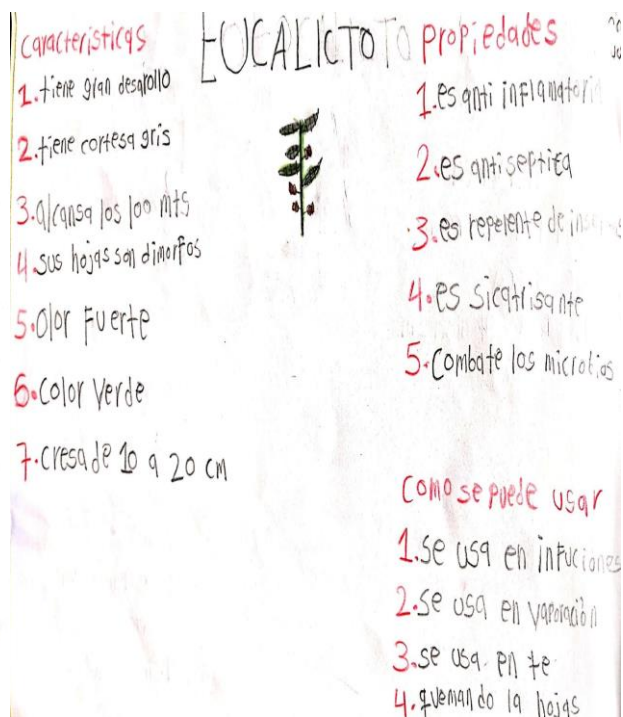 EUCALICTO
caracteristicas
1. tiene gran desarollo
2. tiene cortesa gris
3. alcansa los 100 mts
4. sus hojas son dimorfos
5. Olor Fuerte
6. Color Verde
7. cresa de 10 a 20 cm
propiedades
1. es anti inflamatori
2. es antiseptica
3. es repelente de
4. es sicatrisante
5. Combate los
Como se puede usar
1. se usa en infuciones
2. se usa en vaporación
3. se usa en te
4. quemando la hojas